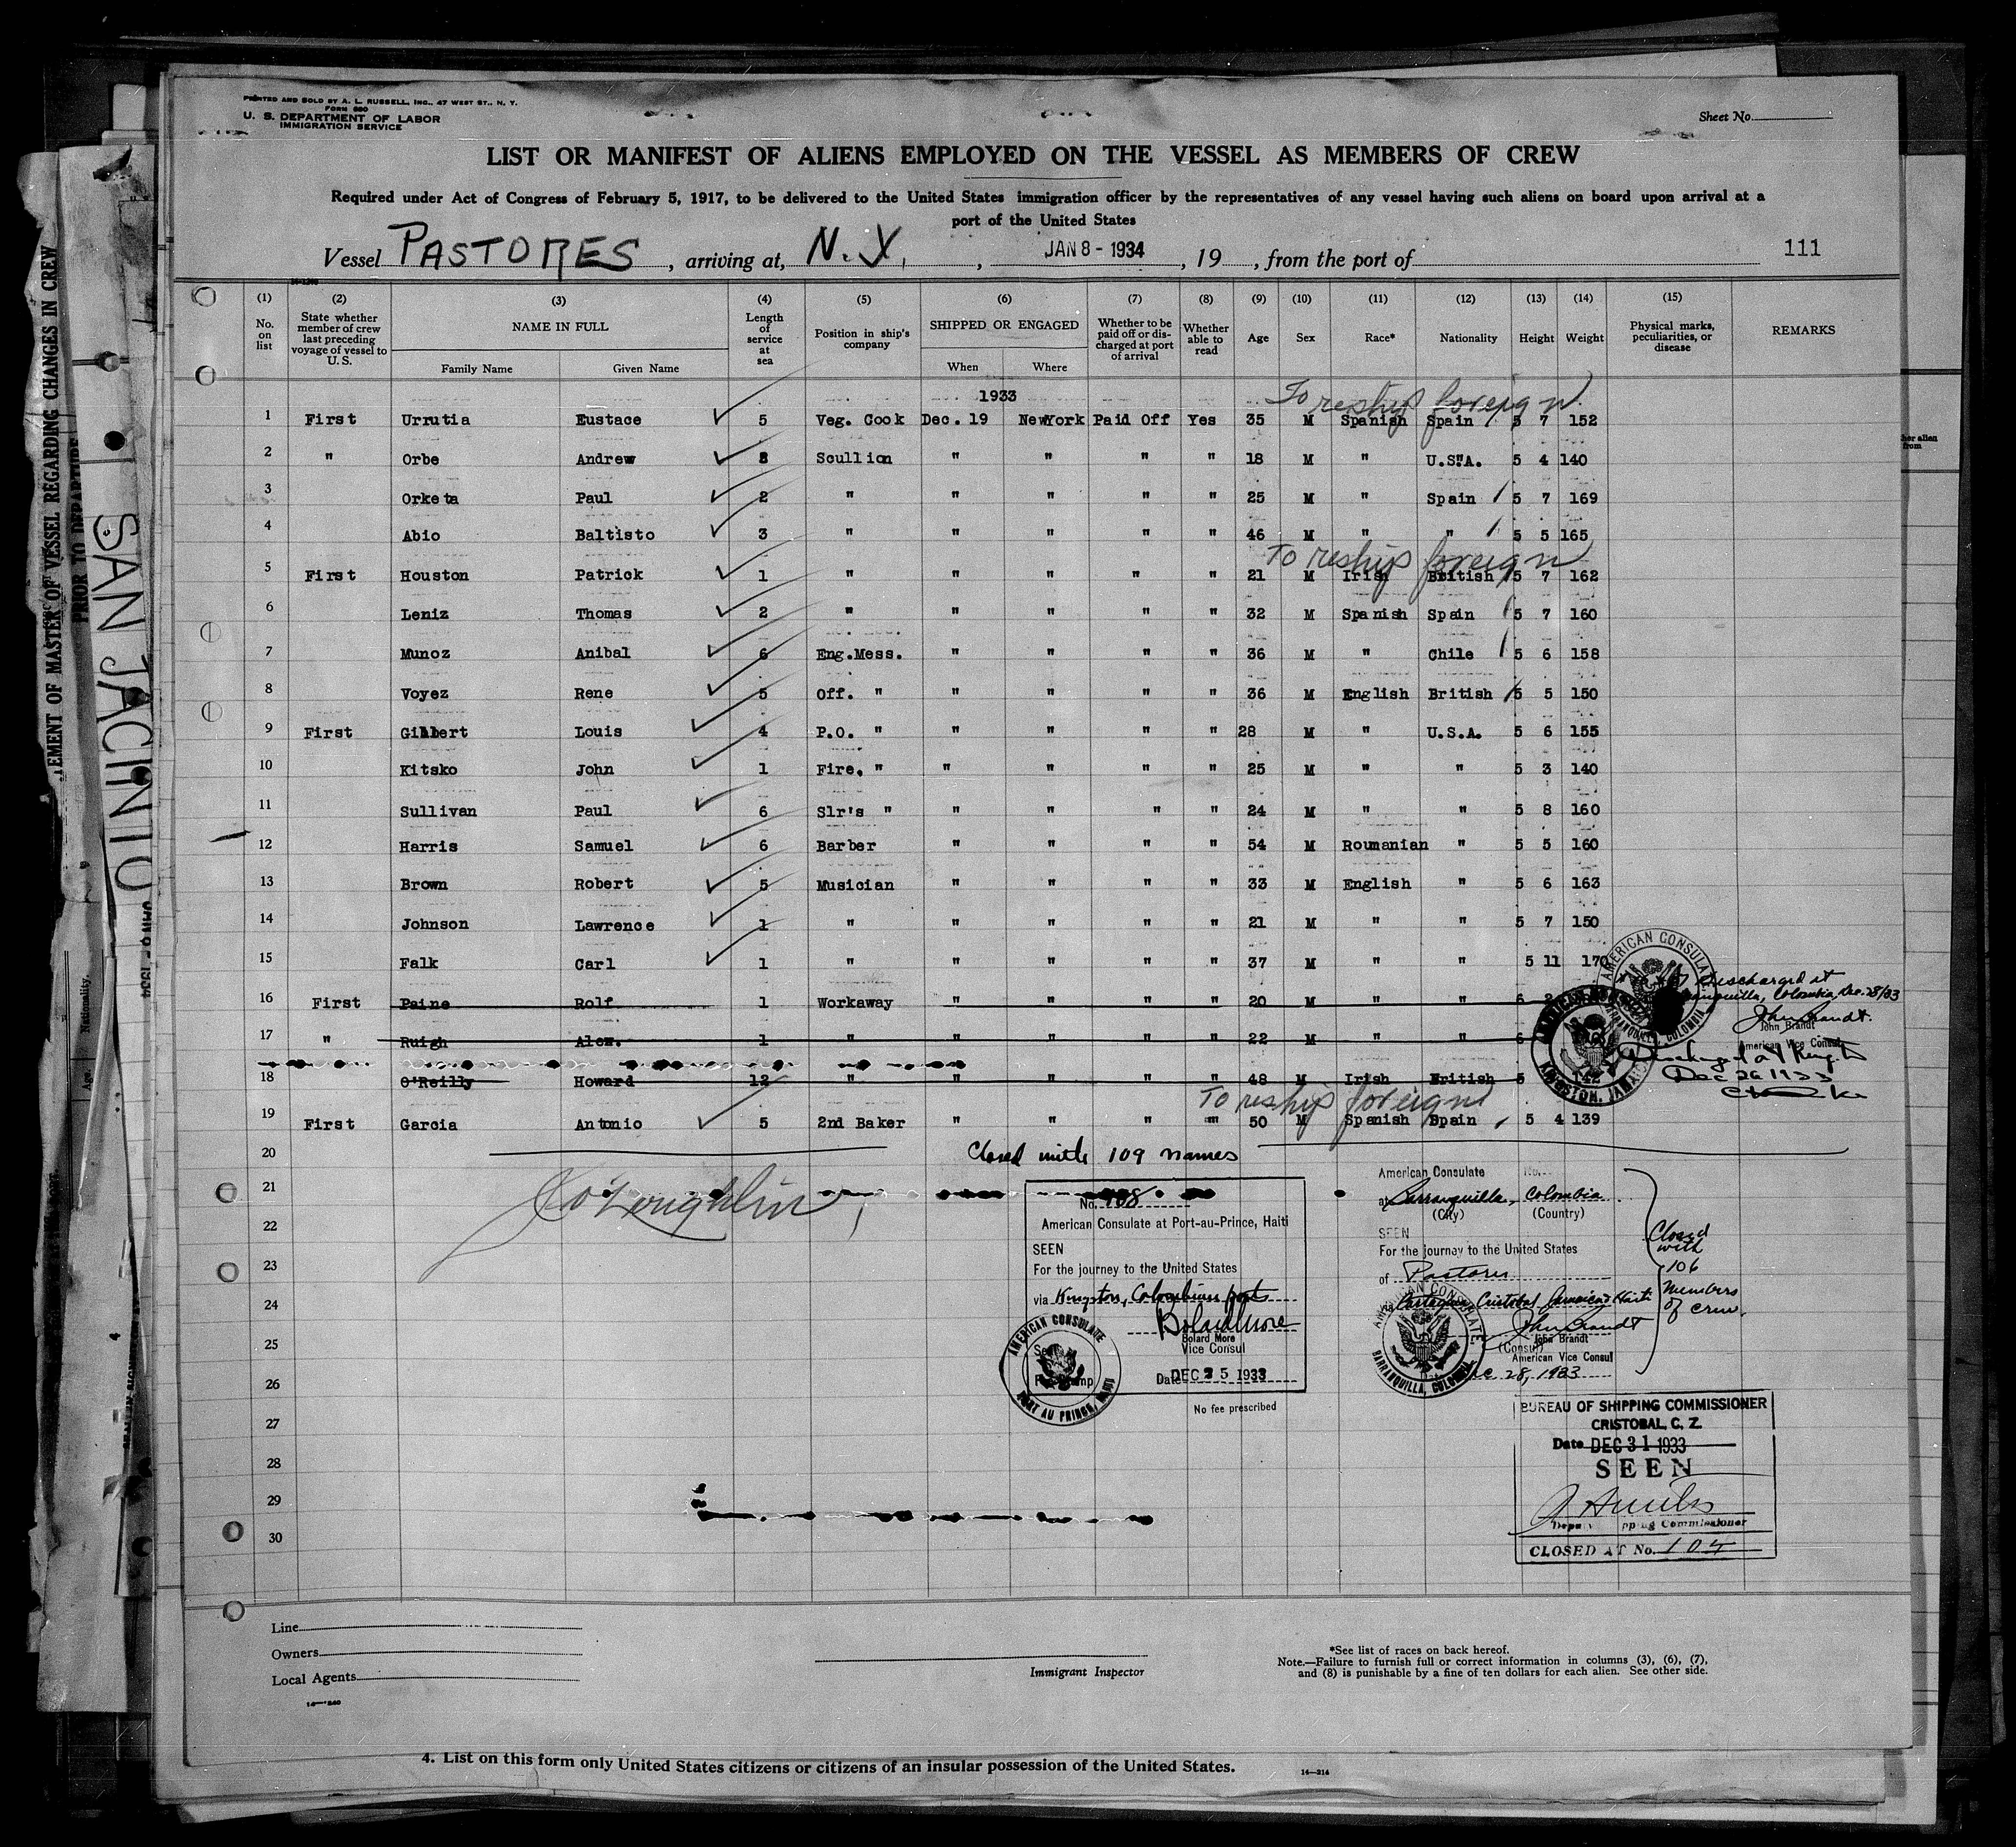 PRINTED AND SOLD BY A. L. RUSSELL, INC., 47 WEST ST., N. Y.
FORM 680
U. S. DEPARTMENT OF LABOR
IMMIGRATION SERVICE
Sheet No.
LIST OR MANIFEST OF ALIENS EMPLOYED ON THE VESSEL AS MEMBERS OF CREW
Required under Act of Congress of February 5, 1917, to be delivered to the United States immigration officer by the representatives of any vessel having such aliens on board upon arrival at a
port of the United States
Vessel PASTORES, arriving at, N. Y., JAN 8 - 1934, 19, from the port of 111
(1) (2) (3) (4) (5) (6) (7) (8) (9) (10) (11) (12) (13) (14) (15)
No. on list
State whether member of crew last preceding voyage of vessel to U. S.
NAME IN FULL
Family Name Given Name
Length of service at sea
Position in ship's company
SHIPPED OR ENGAGED
When Where
Whether to be paid off or discharged at port of arrival
Whether able to read
Age Sex Race* Nationality Height Weight
Physical marks, peculiarities, or disease
REMARKS
1933
To reship foreign
1 First Urrutia Eustace 5 Veg. Cook Dec. 19 NewYork Paid Off Yes 35 M Spanish Spain 5 7 152
2 " Orbe Andrew Scullion " " " " 18 M " U.S.A. 5 4 140
3 Orketa Paul 2 " " " " " 25 M " Spain 5 7 169
4 Abio Baltisto 3 " " " " " 46 M " " 5 5 165
To reship foreign
5 First Houston Patrick 1 " " " " " 21 M Irish British 5 7 162
6 Leniz Thomas 2 " " " " " 32 M Spanish Spain 5 7 160
7 Munoz Anibal 6 Eng.Mess. " " " " 36 M " Chile 5 6 158
8 Voyez Rene 5 Off. " " " " " 36 M English British 5 5 150
9 First Gilbert Louis 4 P.O. " " " " " 28 M " U.S.A. 5 6 155
10 Kitsko John 1 Fire. " " " " " 25 M " " 5 3 140
11 Sullivan Paul 6 Slr's " " " " " 24 M " " 5 8 160
12 Harris Samuel 6 Barber " " " " 54 M Roumanian " 5 5 160
13 Brown Robert 5 Musician " " " " 33 M English " 5 6 163
14 Johnson Lawrence 1 " " " " " 21 M " " 5 7 150
15 Falk Carl 1 " " " " " 37 M " " 5 11 170
16 First Paine Rolf 1 Workaway " " " " 20 M " " 6
Discharged at
Barranquilla, Colombia, Dec. 28/33
John Brandt
John Brandt
American Vice Consul
17 " Ruigh Alex. 1 " " " " " 22 M " " 6
Discharged at Kingston
Dec 26 1933
18 O'Reilly Howard 12 " " " " " 48 M Irish British 5 142
To reship foreign
19 First Garcia Antonio 5 2nd Baker " " " " 50 M Spanish Spain 5 4 139
AMERICAN CONSULATE
BARRANQUILLA, COLOMBIA
KINGSTON, JAMAICA
20
Closed with 109 names
21
22
23
24
25
26
27
28
29
30
J O'Loughlin
No. 708
American Consulate at Port-au-Prince, Haiti
SEEN
For the journey to the United States
via Kingston, Colombian ports
Bolard More
Bolard More
Vice Consul
Date DEC 25 1933
No fee prescribed
AMERICAN CONSULATE
PORT AU PRINCE, HAITI
American Consulate No.
at Barranquilla, Colombia
(City) (Country)
SEEN
For the journey to the United States
of Pastores
via Cartagena Cristobal Jamaica & Haiti
John Brandt
John Brandt
(Consul)
American Vice Consul
Dec. 28, 1933
AMERICAN CONSULATE
BARRANQUILLA, COLOMBIA
Closed
with
106
Members
of crew.
BUREAU OF SHIPPING COMMISSIONER
CRISTOBAL, C. Z.
Date DEC 31 1933
SEEN
Deputy Shipping Commissioner
CLOSED AT No. 104
Line
Owners
Local Agents
Immigrant Inspector
*See list of races on back hereof.
Note.—Failure to furnish full or correct information in columns (3), (6), (7),
and (8) is punishable by a fine of ten dollars for each alien. See other side.
4. List on this form only United States citizens or citizens of an insular possession of the United States.
14—214
SAN JACINTO
EMENT OF MASTER OF VESSEL REGARDING CHANGES IN CREW
PRIOR TO DEPARTURE
Nationality.
Age.
her alien
from